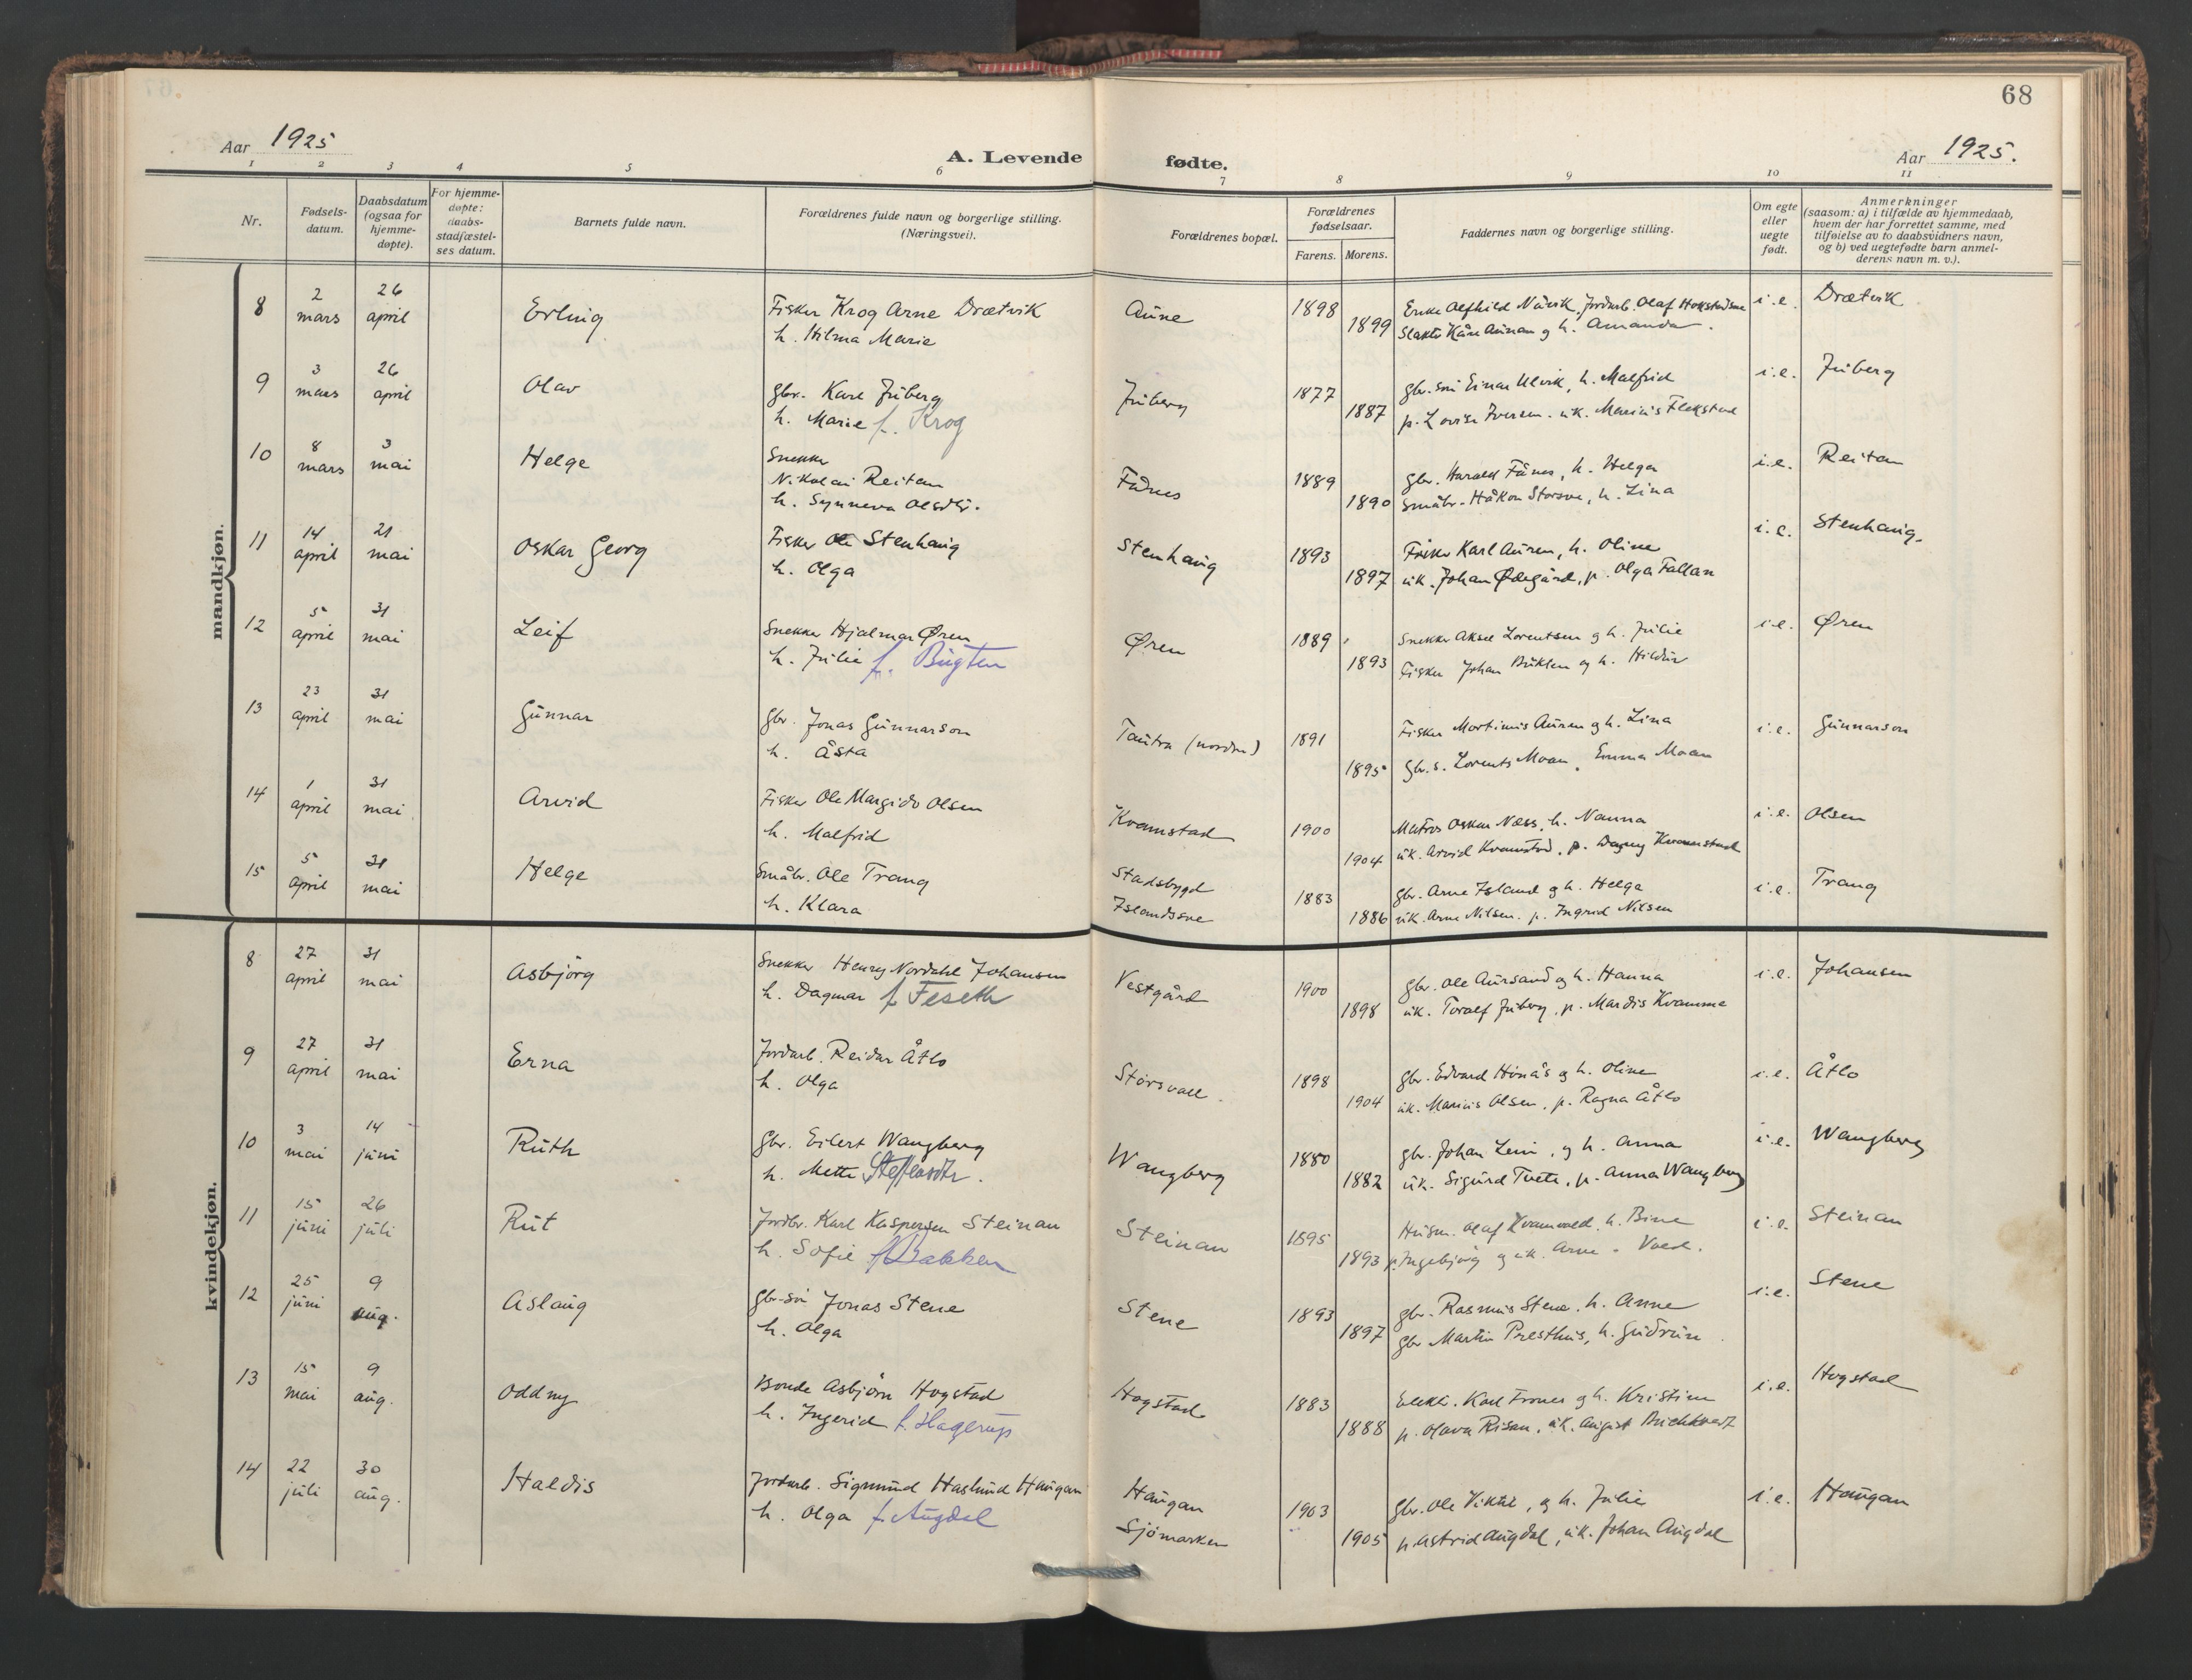 68
Aar 1925
A. Levende fødte.
Aar 1925.
1 2 3 4 5 6 7 8 9 10 11
Nr.
Fødsels-
datum.
Daabsdatum
(ogsaa for
hjemme-
døpte).
For hjemme-
døpte:
daabs-
stadfæstel-
ses datum.
Barnets fulde navn.
Forældrenes fulde navn og borgerlige stilling.
(Næringsvei).
Forældrenes bopæl.
Forældrenes
fødselsaar.
Farens. Morens.
Faddernes navn og borgerlige stilling.
Om egte
eller
uegte
født.
Anmerkninger
(saasom: a) i tilfælde av hjemmedaab,
hvem der har forrettet samme, med
tilføielse av to daabsvidners navn,
og b) ved uegtefødte barn anmel-
derens navn m. v.).
mandkjøn.
8 2 mars 26 april Erling Fisker Krog Arne Drætvik Aune 1898 Enke Alfhild Návik, Jordarb. Olaf i.e. Drætvik
h. Hilma Marie 1899 Slakter Kåre Aunan og h. Amanda.
9 3 mars 26 april Olav gbr. Karl Friberg Friberg 1877 gbr. søn Einar Ulvik, h. Malfrid i.e. Friberg
h. Marie f. Krog 1887 p. Lovise Iversen. uk. Marius Flekstad
10 8 mars 3 mai Helge Snekker
Nikolai Reitan Fånes 1889 gbr. Harald Fånes, h. Helga i.e. Reitan
h. Synneva Olsdtr. 1890 Småbr. Håkon Storsve, h. Lina
11 14 april 21 mai Oskar Georg Fisker Ole Stenhaug Stenhaug 1893 Fisker Karl Auren, h. Oline i.e. Stenhaug.
h. Olga 1897 uk. Johan Ødegård, p. Olga Fallan
12 5 april 31 mai Leif Snekker Hjalmar Øren Øren 1889 Snekker Aksel Lorentsen og h. Julie i.e. Øren
h. Julie f. Bugten 1893 Fisker Johan Bukten og h. Hildur
13 23 april 31 mai Gunnar gbr. Jonas Gunnarson Tautra (nordre) 1891 Fisker Mortinus Auren og h. Lina i.e. Gunnarson
h. Åsta 1895 gbr.s. Lorents Moan, Emma Moan
14 1 april 31 mai Arvid Fisker Ole Margido Olsen Kvamstad 1900 Matros Oskar Næss, h. Nanna i.e. Olsen
h. Malfrid 1904 uk. Arvid Kvamstad, p. Dagny Kvamstad
15 5 april 31 mai Helge Småbr. Ole Trang Stadsbygd 1883 gbr. Arne Island og h. Helga i.e. Trang
h. Klara Islandssve 1886 uk. Arne Nilsen. p. Ingrid Nilsen
kvindekjøn.
8 27 april 31 mai Asbjörg Snekker Henry Nordahl Johansen Vestgård 1900 gbr. Ole Aursand og h. Hanna i.e. Johansen
h. Dagmar f. Feseth 1898 uk. Toralf Friberg, p. Mardis Kvamme
9 27 april 31 mai Erna Jordarb. Reidar Åtlo Storsvall. 1898 gbr. Edvard Hinås og h. Oline i.e. Åtlo
h. Olga 1904 uk. Marius Olsen, p. Ragna Åtlo
10 3 mai 14 juni Ruth gbr. Eilert Wangberg Wangberg 1880 gbr. Johan Lein, og h. Anna i.e. Wangberg
h. Mette Steffensdtr. 1882 uk. Sigurd Tvete, p. Anna Wangberg
11 15 juni 26 juli Rut Jordbr. Karl Kaspersen Steinan Steinan 1895 Husm. Olaf Kvamvold, h. Bine i.e. Steinan
h. Sofie f. Bakken 1893 p. Ingebjörg og uk. Arne Vold.
12 25 juni 9 aug. Aslaug gbr-søn Jonas Stene Stene 1893 gbr. Rasmus Stene, h. Anne i.e. Stene
h. Olga 1897 gbr Martin Presthus, h. Gudrun
13 15 mai 9 aug. Oddny Bonde Asbjörn Hogstad Hogstad 1883 Karl Frones og h. Kristine i.e. Hogstad
h. Ingerid f. Hagerup 1888 p. Olava Risan, uk. August
14 22 juli 30 aug. Haldis Jordarb. Sigmund Haslund Haugan Haugan 1903 gbr. Ole Viktil, og h. Julie i.e. Haugan
h. Olga f. Augdal Sjömarken 1905 p. Astrid Augdal, uk. Johan Augdal